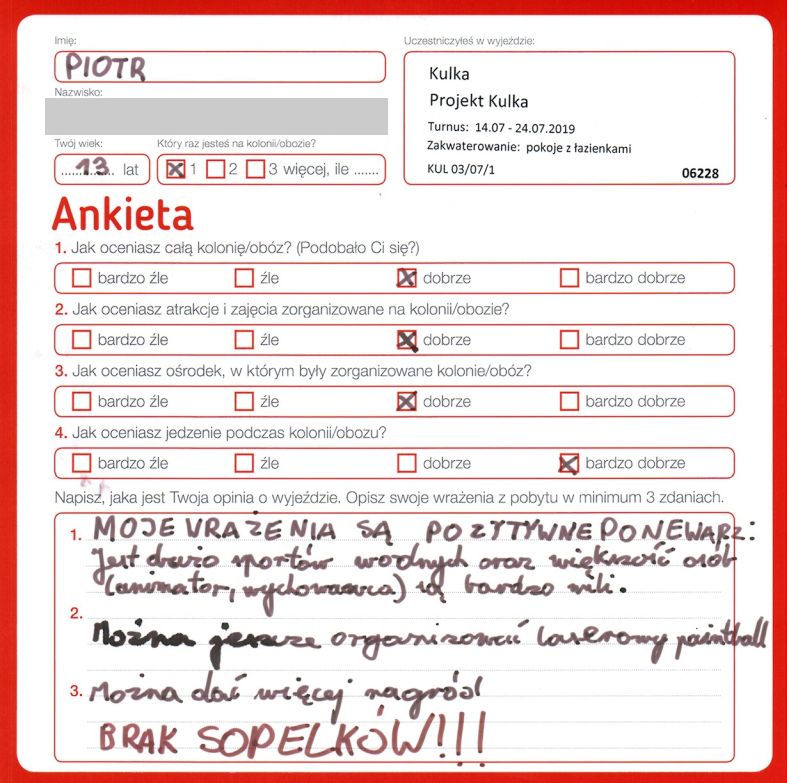 Imię:
PIOTR
Nazwisko:
Twój wiek:
13 lat
Który raz jesteś na kolonii/obozie?
1 2 3 więcej, ile .......
Uczestniczyłeś w wyjeździe:
Kulka
Projekt Kulka
Turnus: 14.07 - 24.07.2019
Zakwaterowanie: pokoje z łazienkami
KUL 03/07/1 06228
Ankieta
1. Jak oceniasz całą kolonię/obóz? (Podobało Ci się?)
bardzo źle źle dobrze bardzo dobrze
2. Jak oceniasz atrakcje i zajęcia zorganizowane na kolonii/obozie?
bardzo źle źle dobrze bardzo dobrze
3. Jak oceniasz ośrodek, w którym były zorganizowane kolonie/obóz?
bardzo źle źle dobrze bardzo dobrze
4. Jak oceniasz jedzenie podczas kolonii/obozu?
bardzo źle źle dobrze bardzo dobrze
Napisz, jaka jest Twoja opinia o wyjeździe. Opisz swoje wrażenia z pobytu w minimum 3 zdaniach.
1. MOJE WRAŻENIA SĄ POZYTYWNE PONEWARZ:
Jest dużo sportów wodnych oraz większość osób
(animator, wychowawca) są bardzo mili.
2.
Można jeszcze organizować laserowy paintball
3. Można dać więcej nagród
BRAK SOPELKÓW!!!